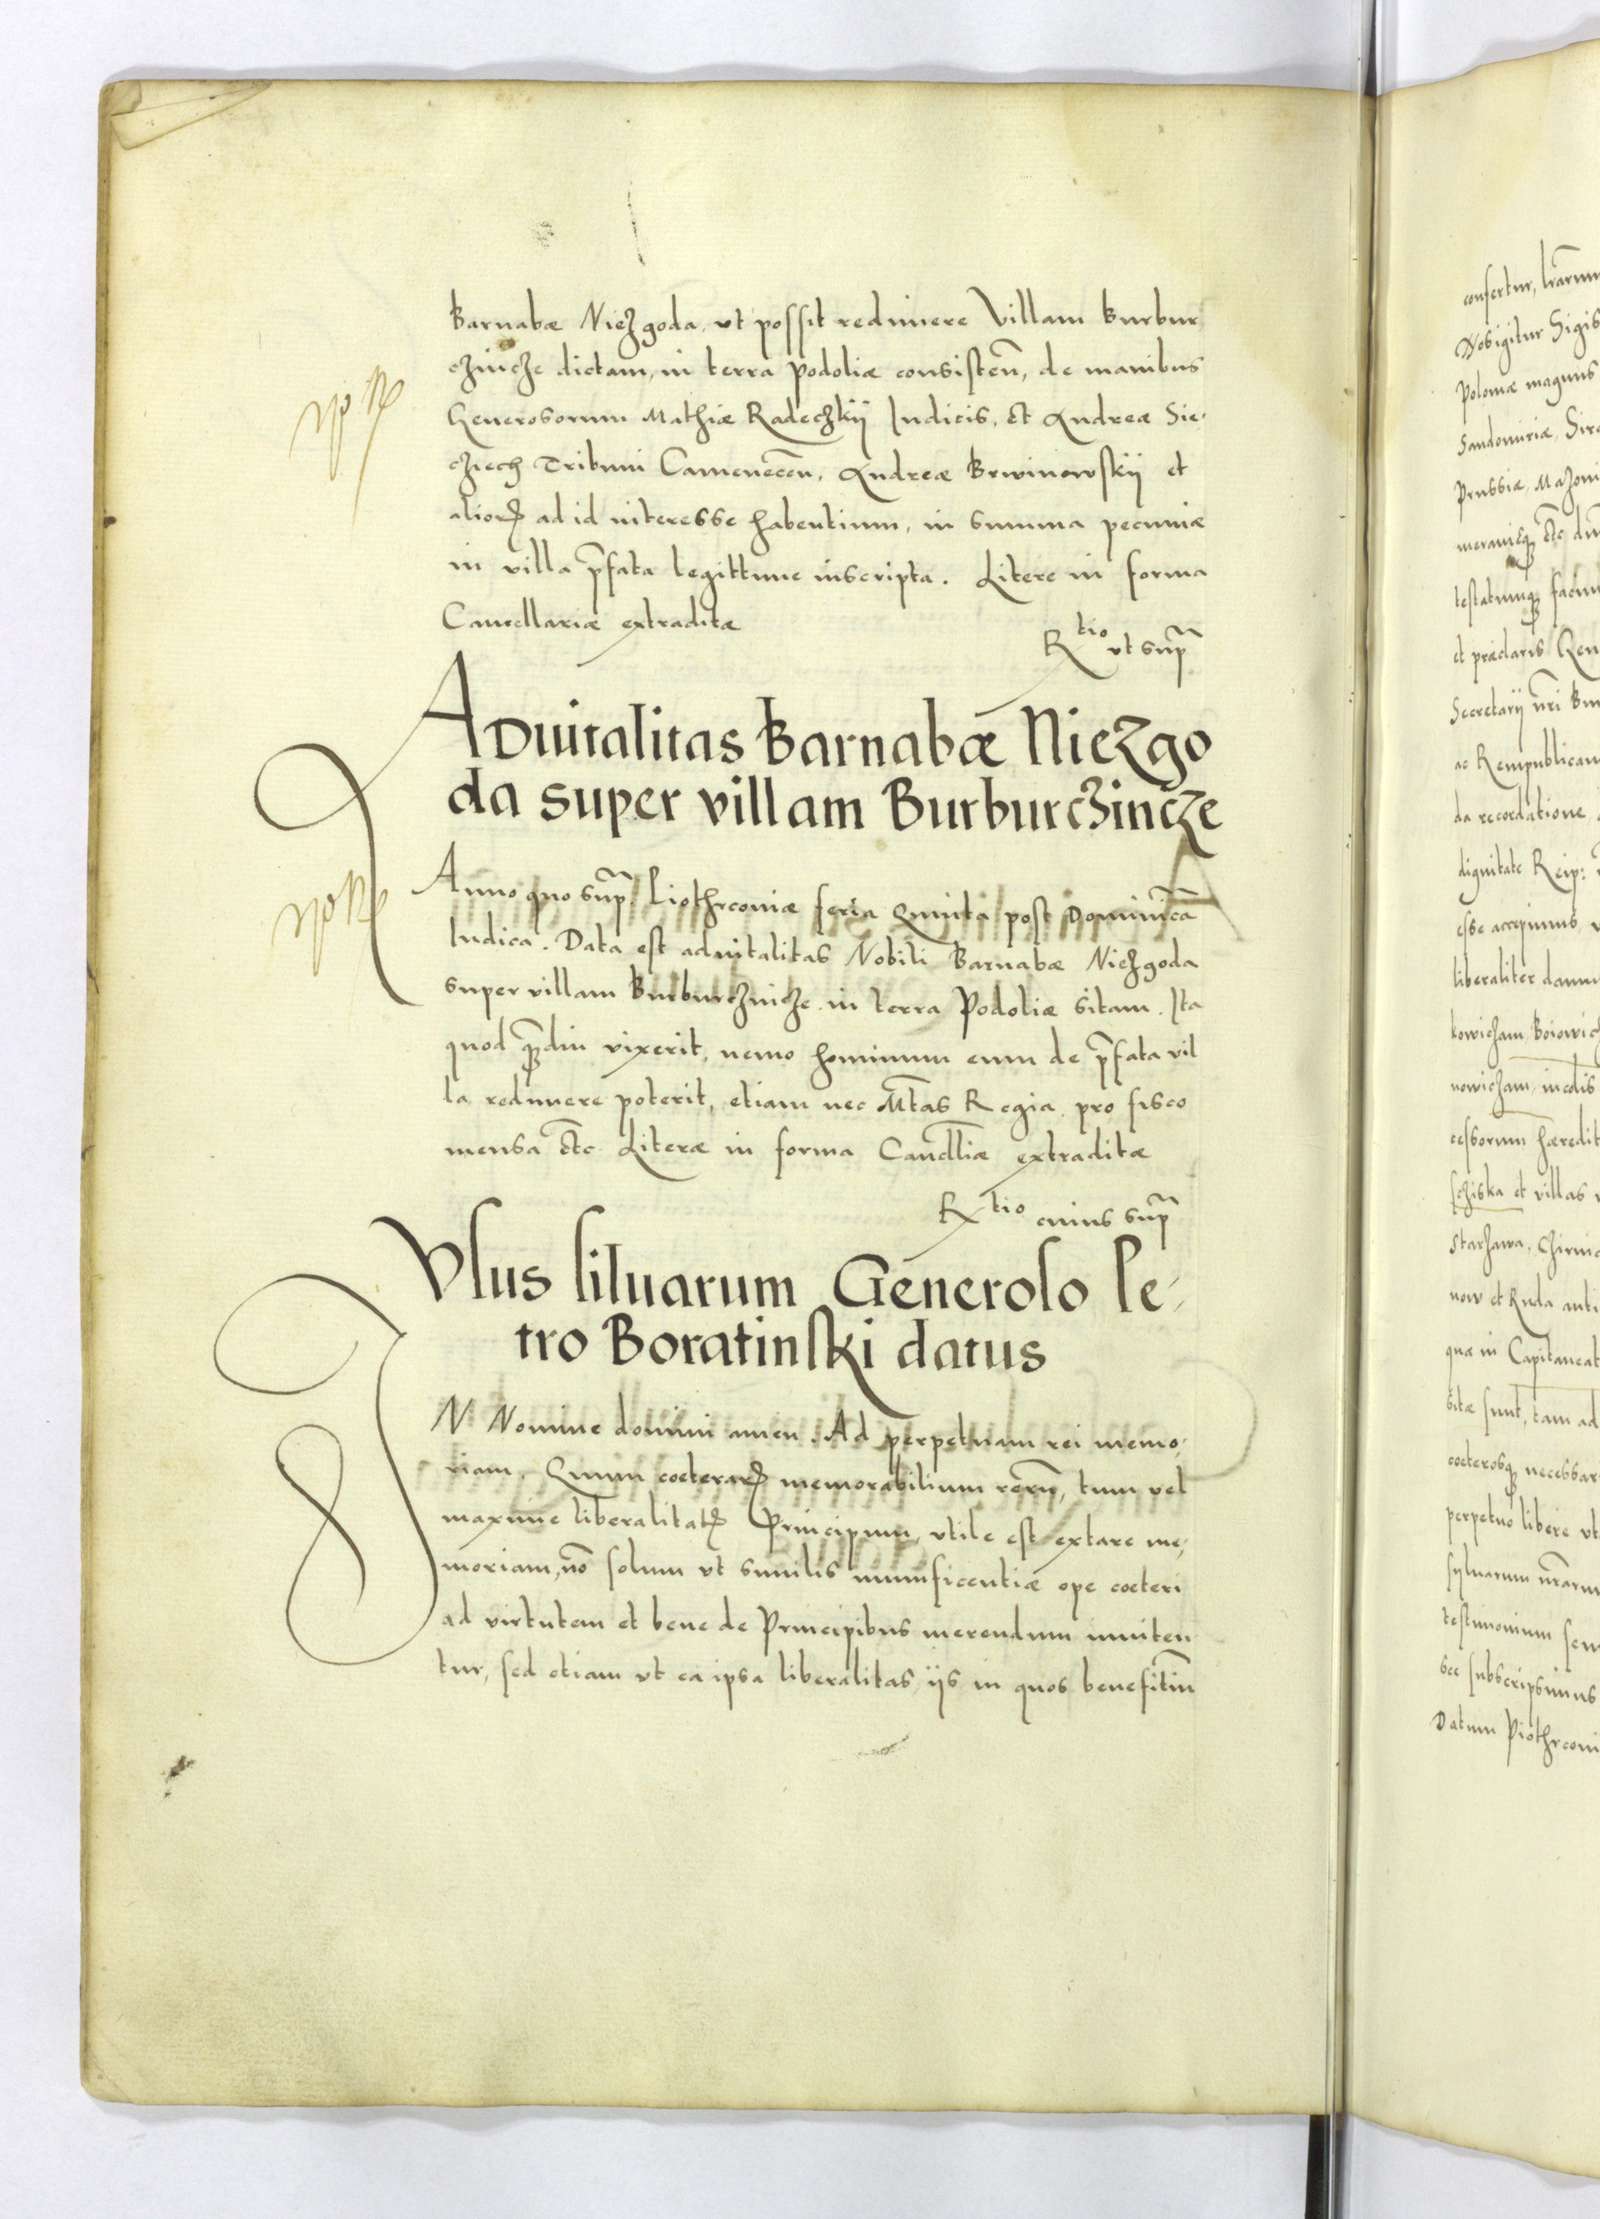 Barnabæ Niezgoda, vt possit redimere Villam Burbur
czincze dictam, in terra Podoliæ consisteñ, de manibus
Generosorum Mathiæ Radeczkij Iudicis, et Andreæ Sie-
cziech Tribuni Cameneceñ, Andreæ Brwinowskij et
alioꝝ ad id interesse habentium, in summa pecuniæ
in villa p̃fata legittime inscripta. Litere in forma
Cancellariæ extraditæ
R^tio vt sup̃
ADvitalitas Barnabæ Niezgo
da super villam Burburczincze
Anno quo sup̃. Piothrcoviæ feria Quinta post Dominicã
Iudica. Data est advitalitas Nobili Barnabæ Niezgoda
super villam Burburczincze in terra Podoliæ sitam. Ita
quod q̃diu vixerit, nemo hominum eum de p̃fata vil
la redimere poterit, etiam nec Mtãs Regia pro fisco
mensa etc̃ Literæ in forma Cancell̃iæ extraditæ
R^tio cuius sup̃
Vsus siluarum Generoso Pe-
tro Boratinski datus
IN Nomine domini amen. Ad perpetuam rei memo-
riam. Quum coeteraꝝ memorabilium rerũ, tum vel
maxime liberalitatꝭ Principum, vtile est extare me-
moriam, nõ solum vt similis munificentiæ ope coeteri
ad virtutem et bene de Principibus merendum inuiten
tur, sed etiam vt ea ipsa liberalitas, ijs in quos benefitiũ
confertur,
Nos igitur Sigis
Poloniæ magnus
Sandomiriæ, Sira
Prussiæ, Mazoui
et præclaris Gen
Secretarij nr̃i
ac Rempublicam
da recordatione
dignitate Reip:
esse accepimus
liberaliter damu
nowiczam, in
cessorum hæredit
et villas
Starzawa,
now et Ruda anti
quæ in Capitaneat
sitæ sunt, tam ad
coeterosq necessar
perpetuo libere vt
syluarum nr̃arum
testimonium
subscripsimus
Datum Piothrcoui